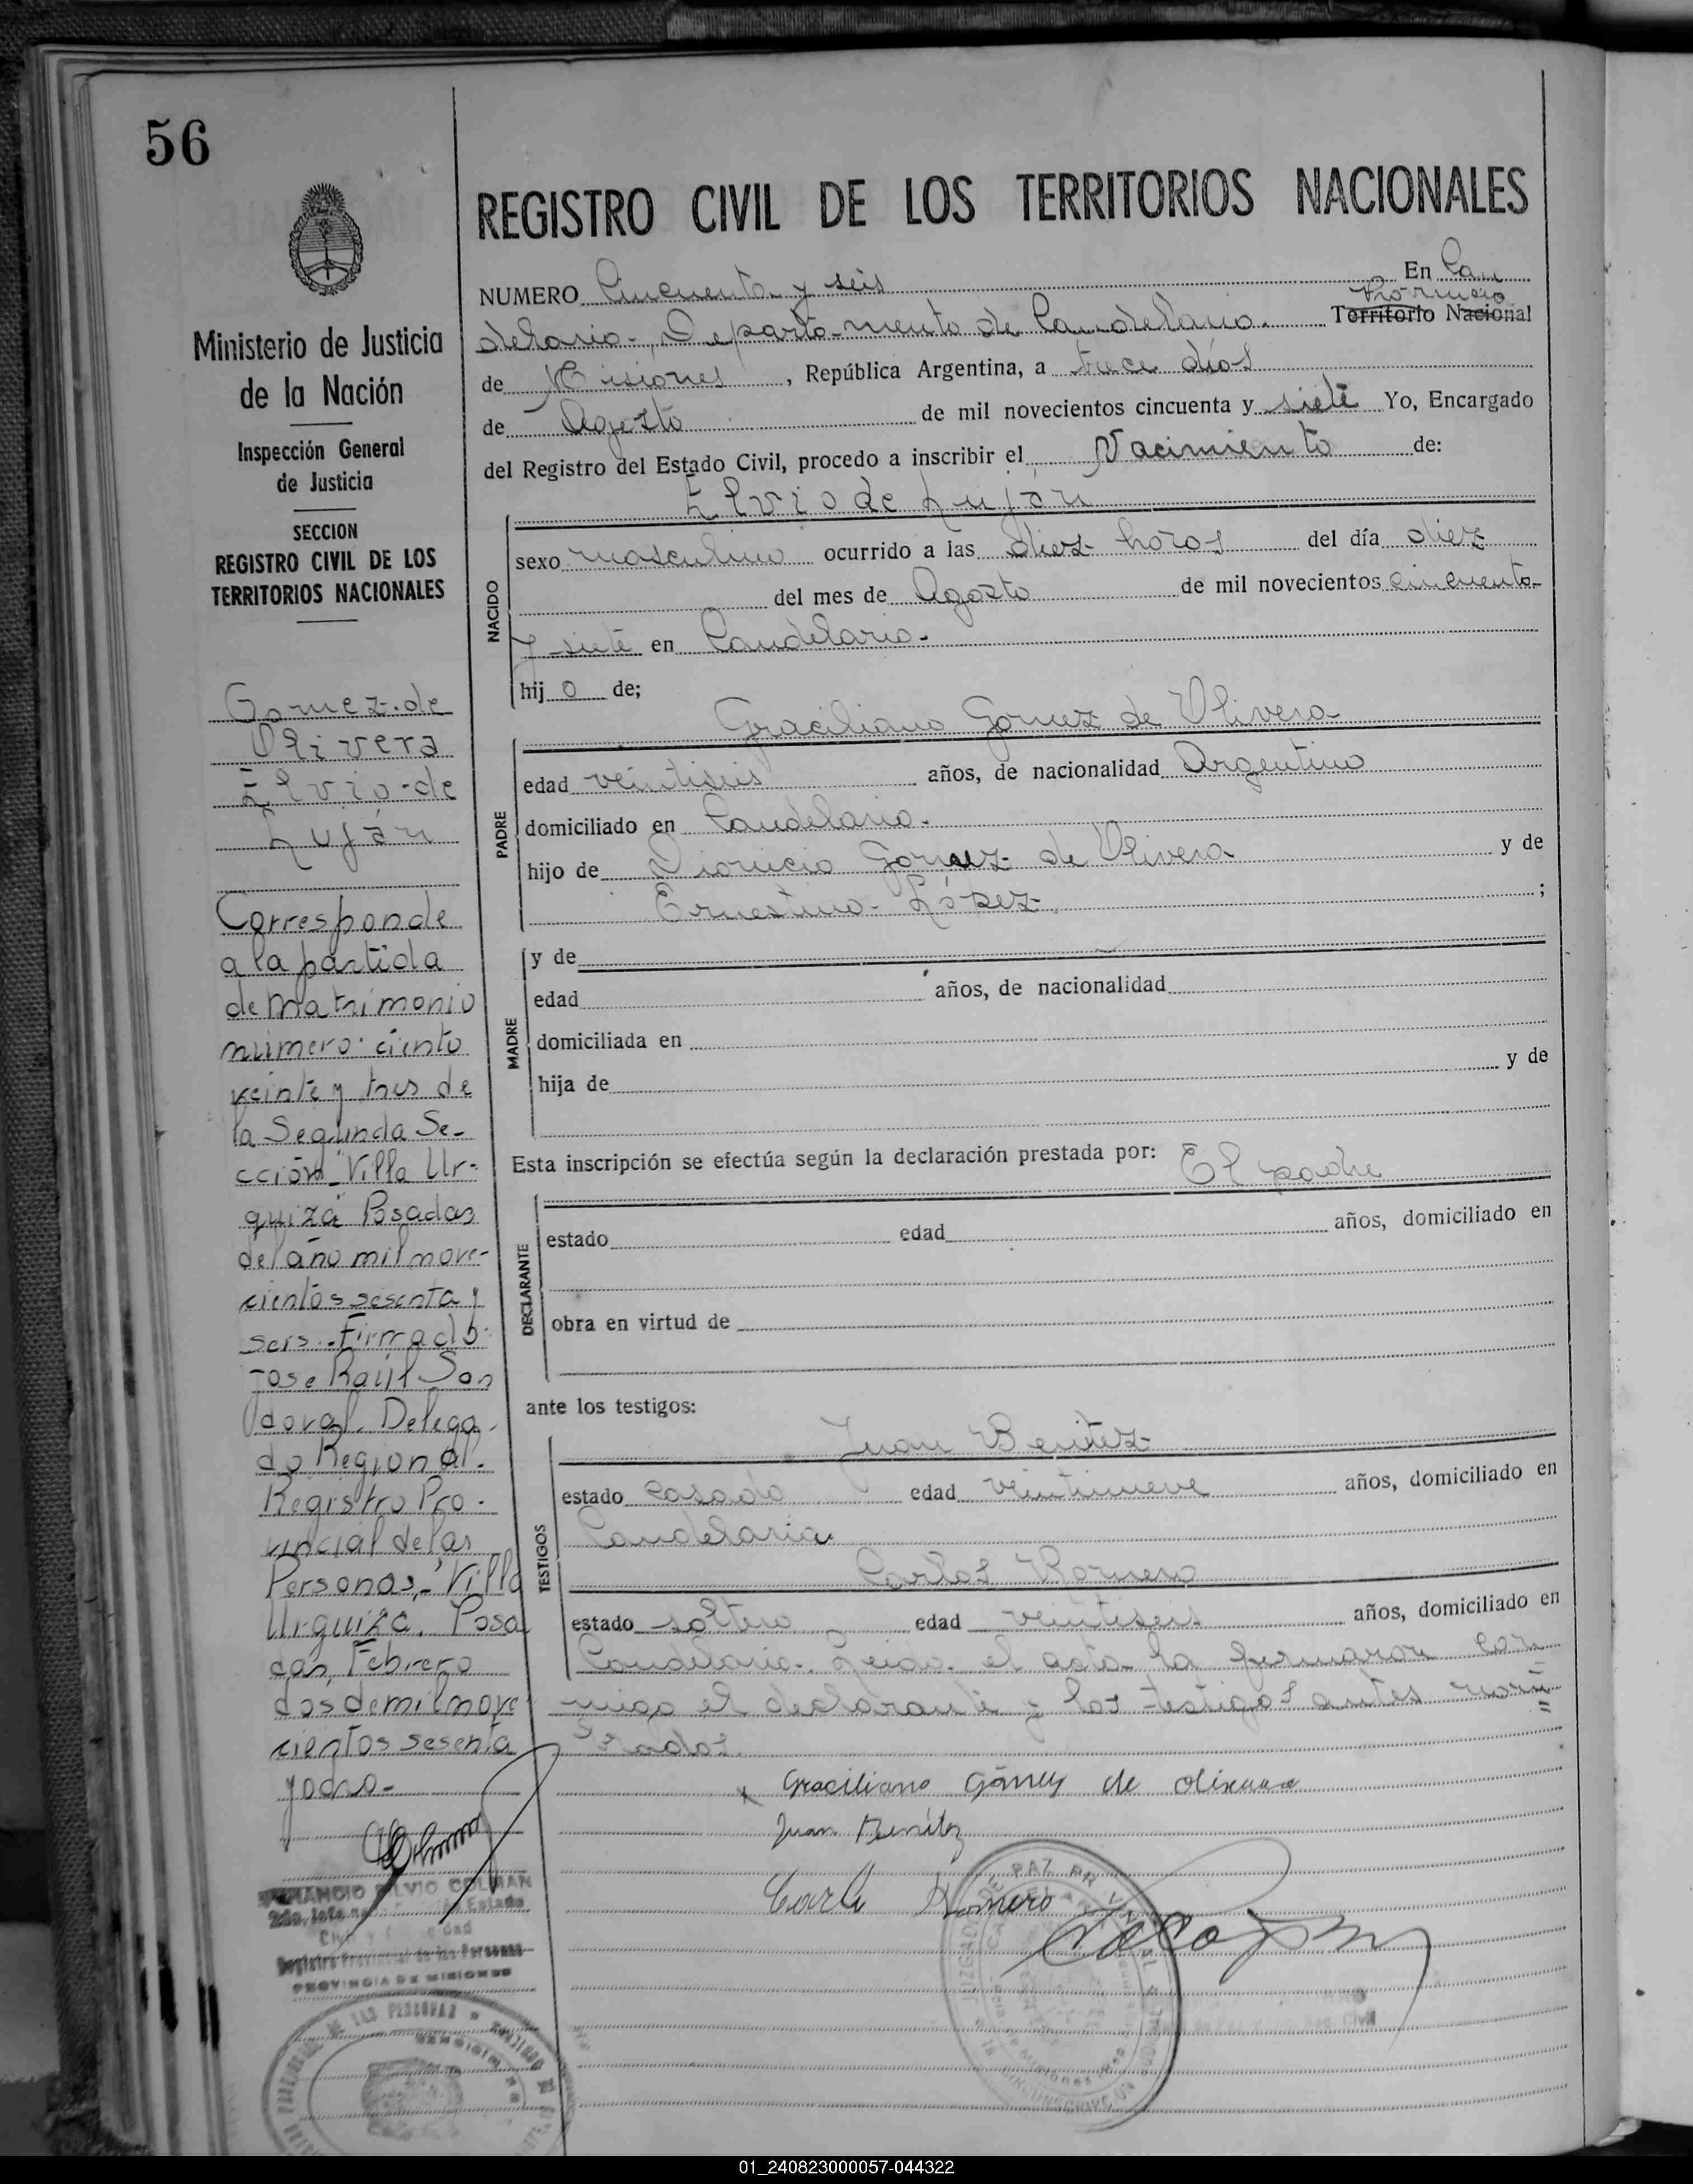 56
Ministerio de Justicia
de la Nación
Inspección General
de Justicia
SECCION
REGISTRO CIVIL DE LOS
TERRITORIOS NACIONALES
Gomez de
Olivera
Elvio de
Luján
Corresponde
a la partida
de matrimonio
número: ciento
veinte y tres de
la Segunda Se-
cción Villa Ur-
quiza Posadas
del año mil nove-
cientos sesenta y
seis. Firmado:
Jose Raúl San
doval. Delega-
do Regional.
Registro Pro-
vincial de las
Personas.- Villa
Urquiza. Posa
das, Febrero
dos de mil nove
cientos sesenta
y ocho.-
SILVIO COLMAN
Registro Provincial de las Personas
PROVINCIA DE MISIONES
REGISTRO CIVIL DE LOS TERRITORIOS NACIONALES
NUMERO Cincuenta y seis En Can
delaria-, Departamento de Candelaria. Provincia Territorio Nacional
de Misiones, República Argentina, a trece días
de Agosto de mil novecientos cincuenta y siete Yo, Encargado
del Registro del Estado Civil, procedo a inscribir el Nacimiento de:
Elvio de Luján
NACIDO
sexo masculino ocurrido a las diez horas del día diez
del mes de Agosto de mil novecientos cincuenta
y siete en Candelaria.
hijo de;
Graciliano Gomez de Olivera
PADRE
edad veintiseis años, de nacionalidad Argentino
domiciliado en Candelaria.
hijo de Dionicio Gomez de Olivera y de
Ernestina López ;
MADRE
y de
edad años, de nacionalidad
domiciliada en
hija de y de
Esta inscripción se efectúa según la declaración prestada por: El padre
DECLARANTE
estado edad años, domiciliado en
obra en virtud de
ante los testigos:
TESTIGOS
Juan Benitez
estado casado edad veintinueve años, domiciliado en
Candelaria
Carlos Romero
estado soltero edad veintiseis años, domiciliado en
Candelaria. Leida el acta la firmaron con
migo el declarante y los testigos antes nom
brados.
x Graciliano Gómez de Olivera
Juan Benítez
Carlo Romero
01_240823000057-044322